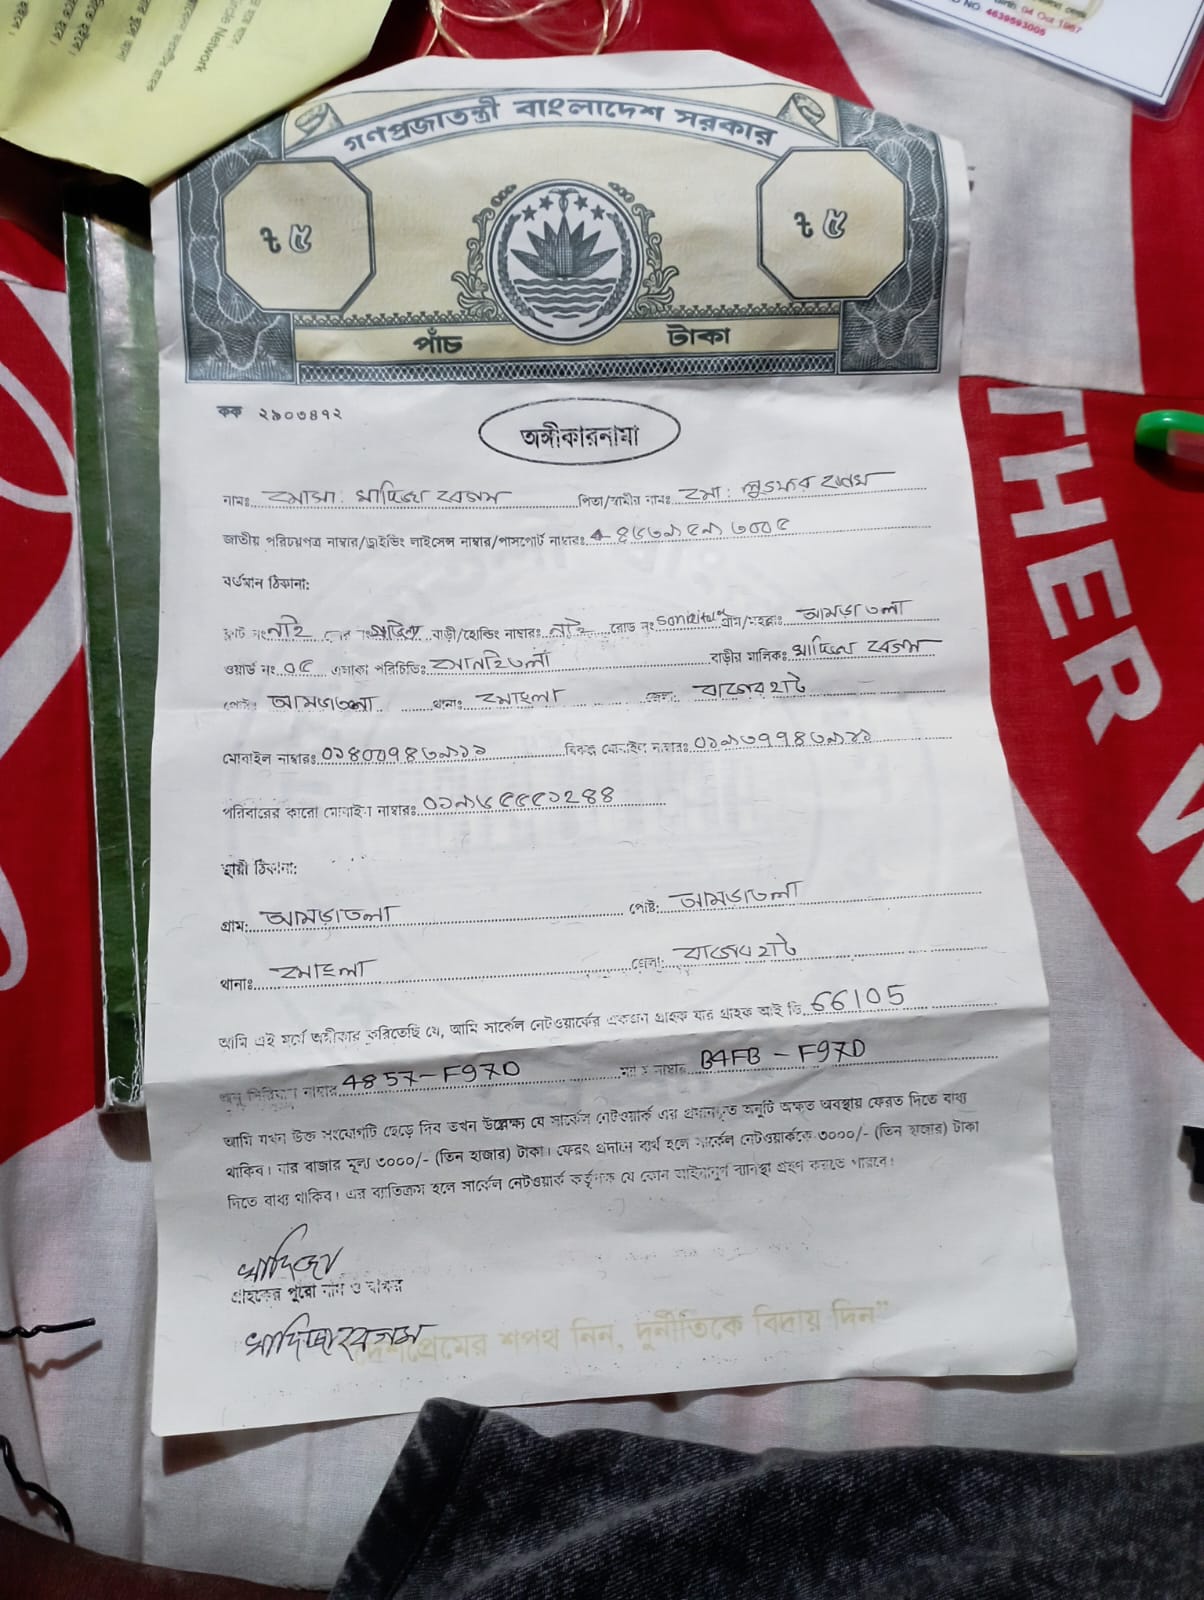 Circle Network
NO 4639593005
04 Oct 1967
গণপ্রজাতন্ত্রী বাংলাদেশ সরকার
৳ ৫
৳ ৫
পাঁচ টাকা
কক ২৯০৩৪৭২
অঙ্গীকারনামা
নামঃ মোসা: খাদিজা বেগম পিতা/স্বামীর নামঃ মো: লুৎফর
জাতীয় পরিচয়পত্র নাম্বার/ড্রাইভিং লাইসেন্স নাম্বার/পাসপোর্ট নাম্বারঃ ৪৬৩৯৫৯৩০০৫
বর্তমান ঠিকানা:
নাই বাড়ী/হোল্ডিং নাম্বারঃ নাই রোড নং গ্রাম/মহল্লাঃ আমড়াতলা
ওয়ার্ড নং ০৫ এলাকা পরিচিতিঃ বাড়ীর মালিকঃ খাদিজা বেগম
পোষ্ট: আমড়াতলা থানাঃ মোংলা জেলা: বাগেরহাট
মোবাইল নাম্বারঃ ০১৪০০৭৪৩৯১১ বিকল্প মোবাইল নাম্বারঃ ০১৯৩৭৭৪৩৯৪১
পরিবারের কারো মোবাইল নাম্বারঃ ০১৯১৬৫৫৫১২৪৪
স্থায়ী ঠিকানা:
গ্রাম: আমড়াতলা পোষ্ট: আমড়াতলা
থানাঃ মোংলা জেলা: বাগেরহাট
আমি এই মর্মে অঙ্গীকার করিতেছি যে, আমি সার্কেল নেটওয়ার্কের একজন গ্রাহক যার গ্রাহক আই ডি 66105
অনু সিরিয়াল নাম্বার 4857-F97D ম্যাক নাম্বার B4FB-F97D
আমি যখন উক্ত সংযোগটি ছেড়ে দিব তখন উল্লেক্ষ্য যে সার্কেল নেটওয়ার্ক এর প্রদানকৃত অনুটি অক্ষত অবস্থায় ফেরত দিতে বাধ্য
থাকিব। যার বাজার মূল্য ৩০০০/- (তিন হাজার) টাকা। ফেরৎ প্রদানে ব্যর্থ হলে সার্কেল নেটওয়ার্ককে ৩০০০/- (তিন হাজার) টাকা
দিতে বাধ্য থাকিব। এর ব্যতিক্রম হলে সার্কেল নেটওয়ার্ক কর্তৃপক্ষ যে কোন আইনানুগ ব্যবস্থা গ্রহণ করতে পারবে।
খাদিজা
গ্রাহকের পুরো নাম ও স্বাক্ষর
খাদিজা বেগম
দেশপ্রেমের শপথ নিন, দুর্নীতিকে বিদায় দিন”
THER W